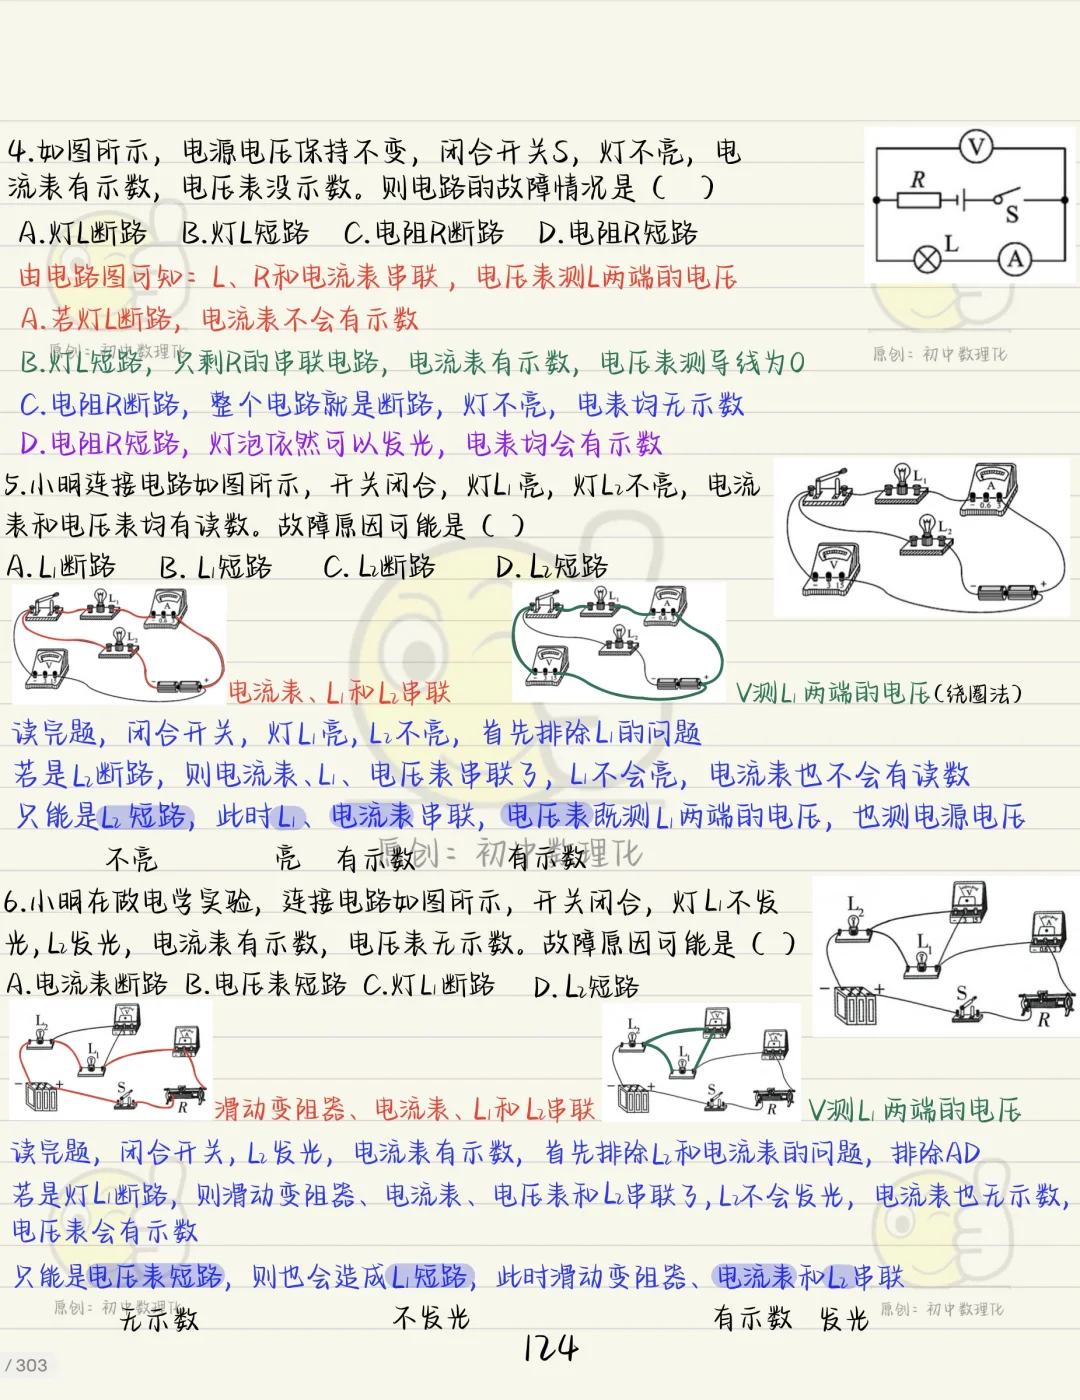 4.如图所示，电源电压保持不变，闭合开关S，灯不亮，电
流表有示数，电压表没示数。则电路的故障情况是（ ）
A.灯L断路 B.灯L短路 C.电阻R断路 D.电阻R短路
V
R
S
L
A
由电路图可知：L、R和电流表串联，电压表测L两端的电压
A.若灯L断路，电流表不会有示数
原创：初中数理化
原创：初中数理化
B.灯L短路，只剩R的串联电路，电流表有示数，电压表测导线为0
C.电阻R断路，整个电路就是断路，灯不亮，电表均无示数
D.电阻R短路，灯泡依然可以发光，电表均会有示数
5.小明连接电路如图所示，开关闭合，灯L₁亮，灯L₂不亮，电流
表和电压表均有读数。故障原因可能是（ ）
A.L₁断路 B.L₁短路 C.L₂断路 D.L₂短路
L₁
A
- 0.6 3
L₂
V
- 3 15
- +
L₁
A
L₂
V
- +
电流表、L₁和L₂串联
L₁
A
L₂
V
- +
V测L₁两端的电压(绕圈法)
读完题，闭合开关，灯L₁亮,L₂不亮，首先排除L₁的问题
若是L₂断路，则电流表、L₁、电压表串联了，L₁不会亮，电流表也不会有读数
只能是L₂短路，此时L₁、电流表串联，电压表既测L₁两端的电压，也测电源电压
不亮 亮 有示数 有示数
原创：初中数理化
6.小明在做电学实验，连接电路如图所示，开关闭合，灯L₁不发
光,L₂发光，电流表有示数，电压表无示数。故障原因可能是（ ）
A.电流表断路 B.电压表短路 C.灯L₁断路 D.L₂短路
L₂
V
L₁
A
- +
S
R
L₂
L₁
- +
S
R
滑动变阻器、电流表、L₁和L₂串联
L₂
L₁
- +
S
R
V测L₁两端的电压
读完题，闭合开关,L₂发光，电流表有示数，首先排除L₂和电流表的问题，排除AD
若是灯L₁断路，则滑动变阻器、电流表、电压表和L₂串联了,L₂不会发光，电流表也无示数,
电压表会有示数
只能是电压表短路，则也会造成L₁短路，此时滑动变阻器、电流表和L₂串联
原创：初中数理化
原创：初中数理化
无示数 不发光 有示数 发光
124
/ 303